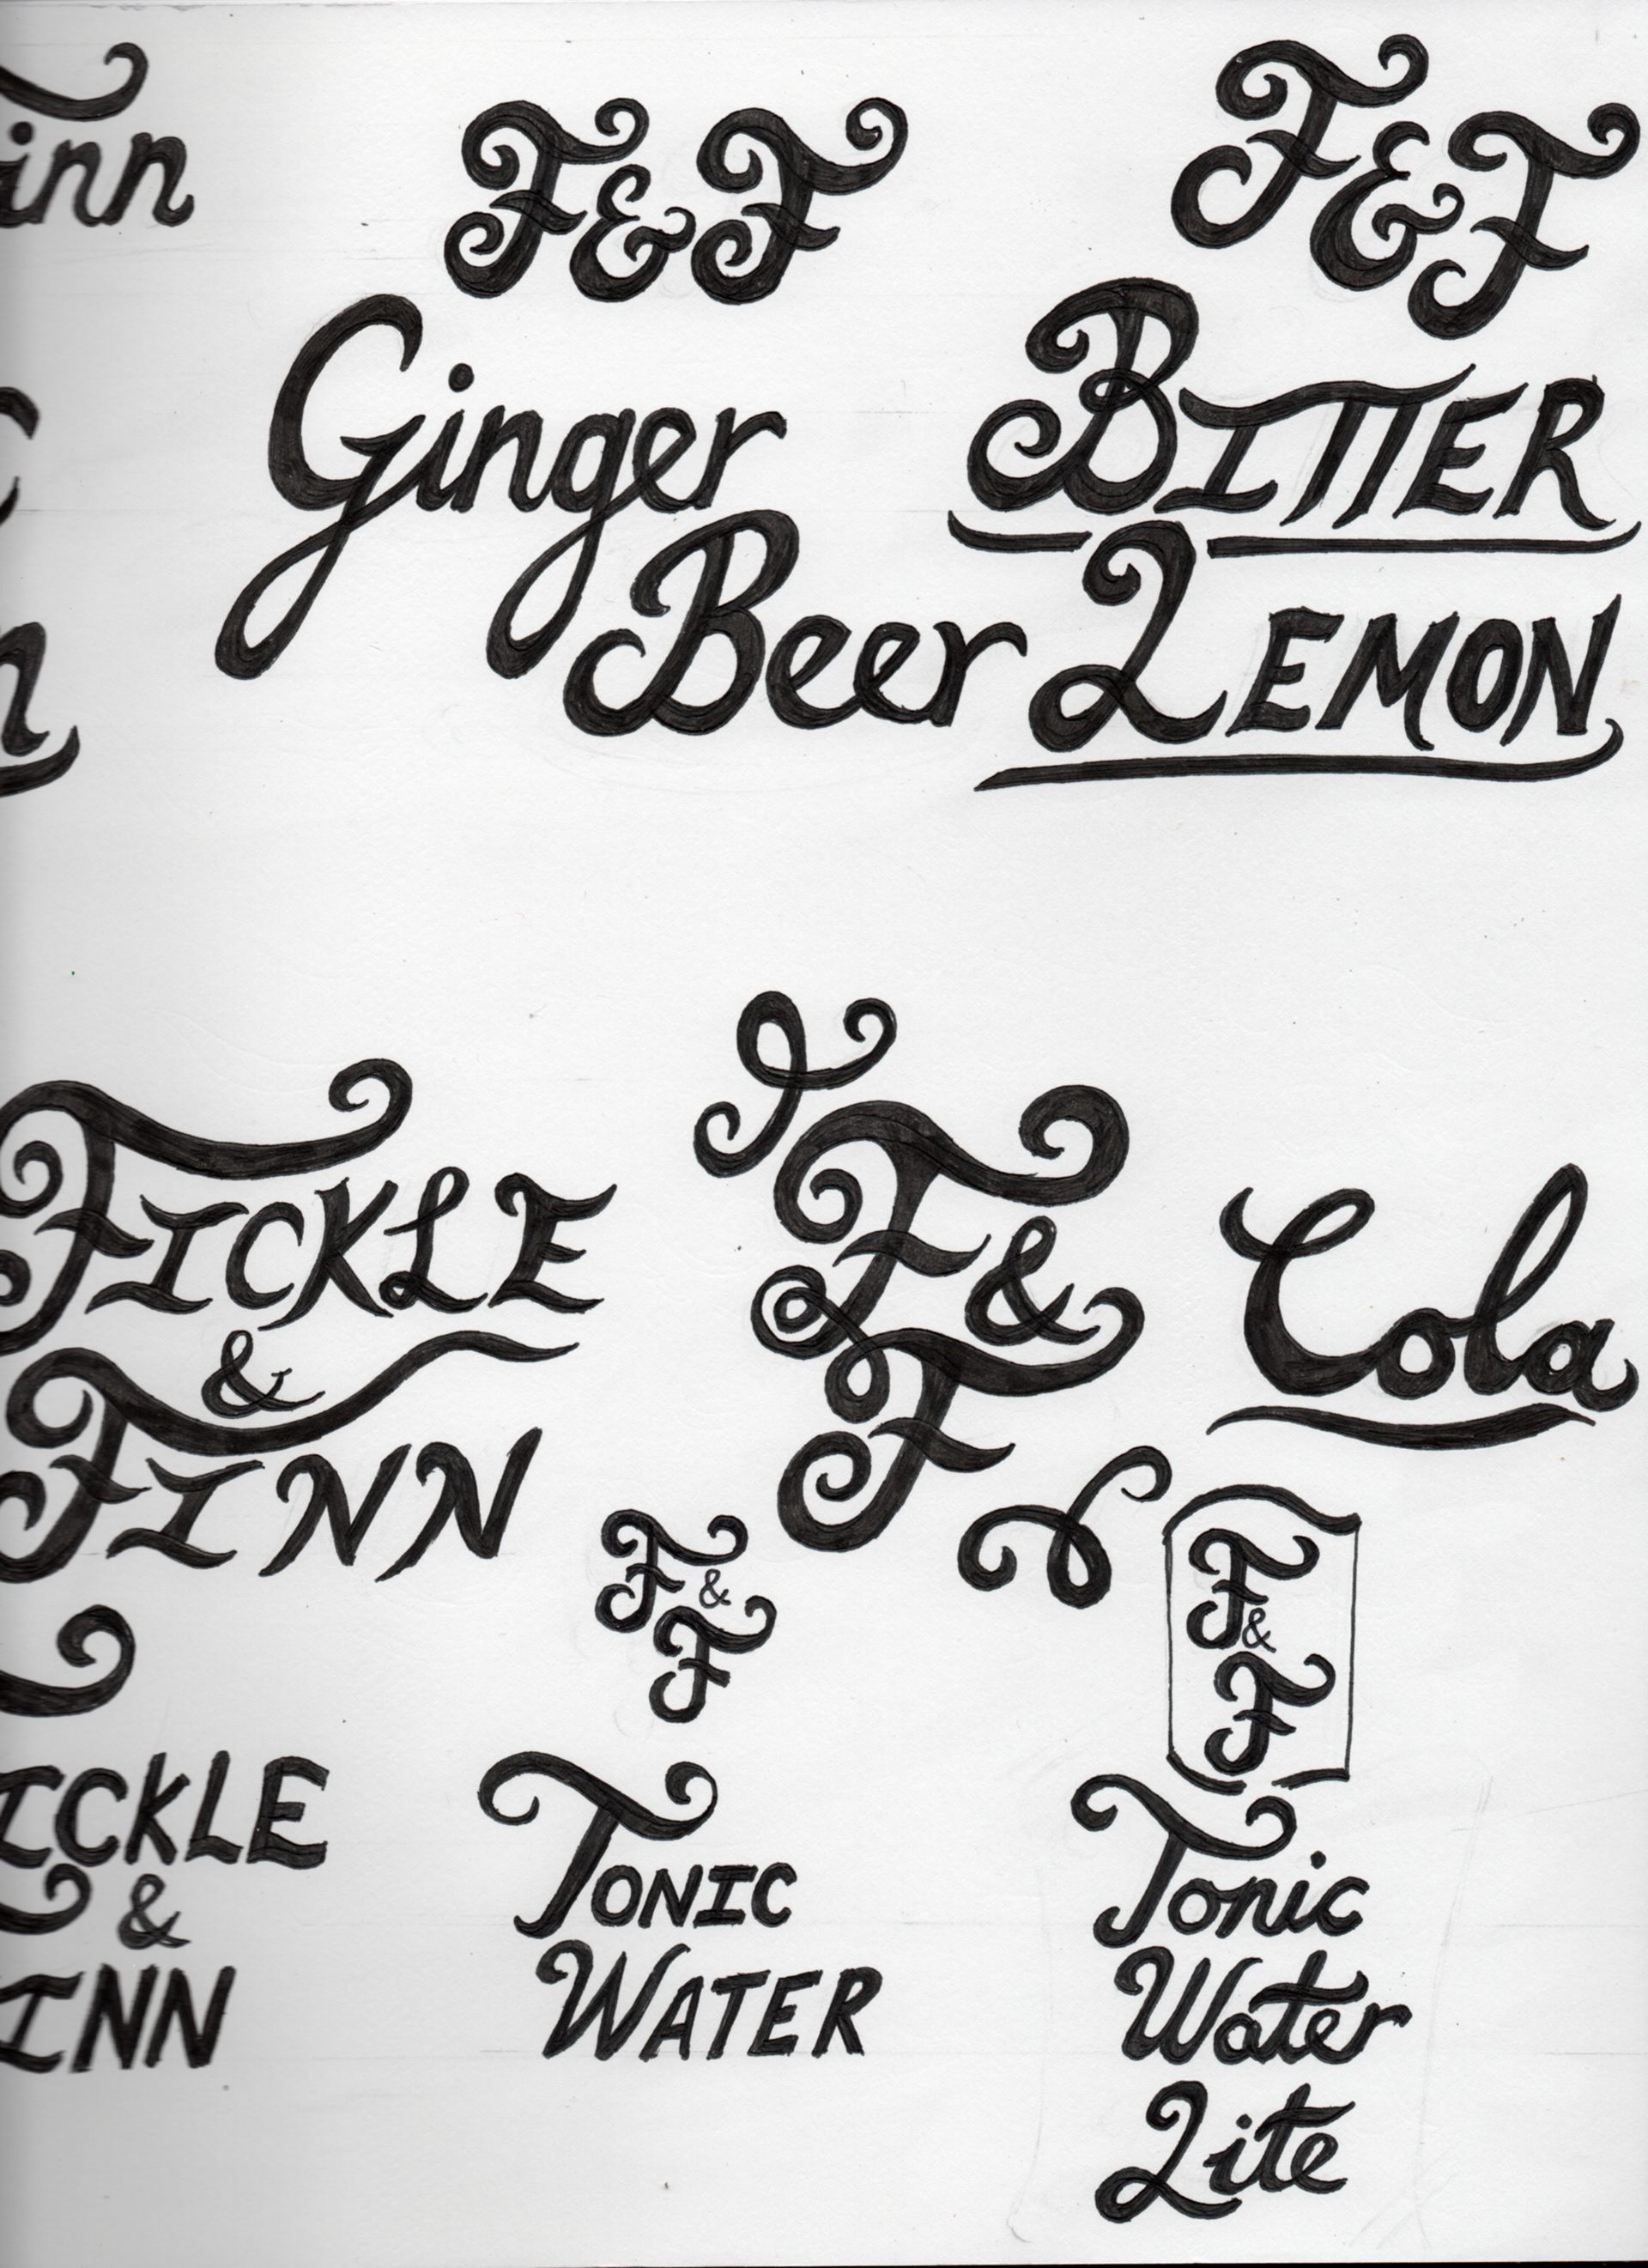 inn
F&F
F&F
Ginger
Beer
BITTER
LEMON
n
FICKLE
&
FINN
F&
F
Cola
F
&
F
F
&
F
ICKLE
&
INN
TONIC
WATER
Tonic
Water
Lite